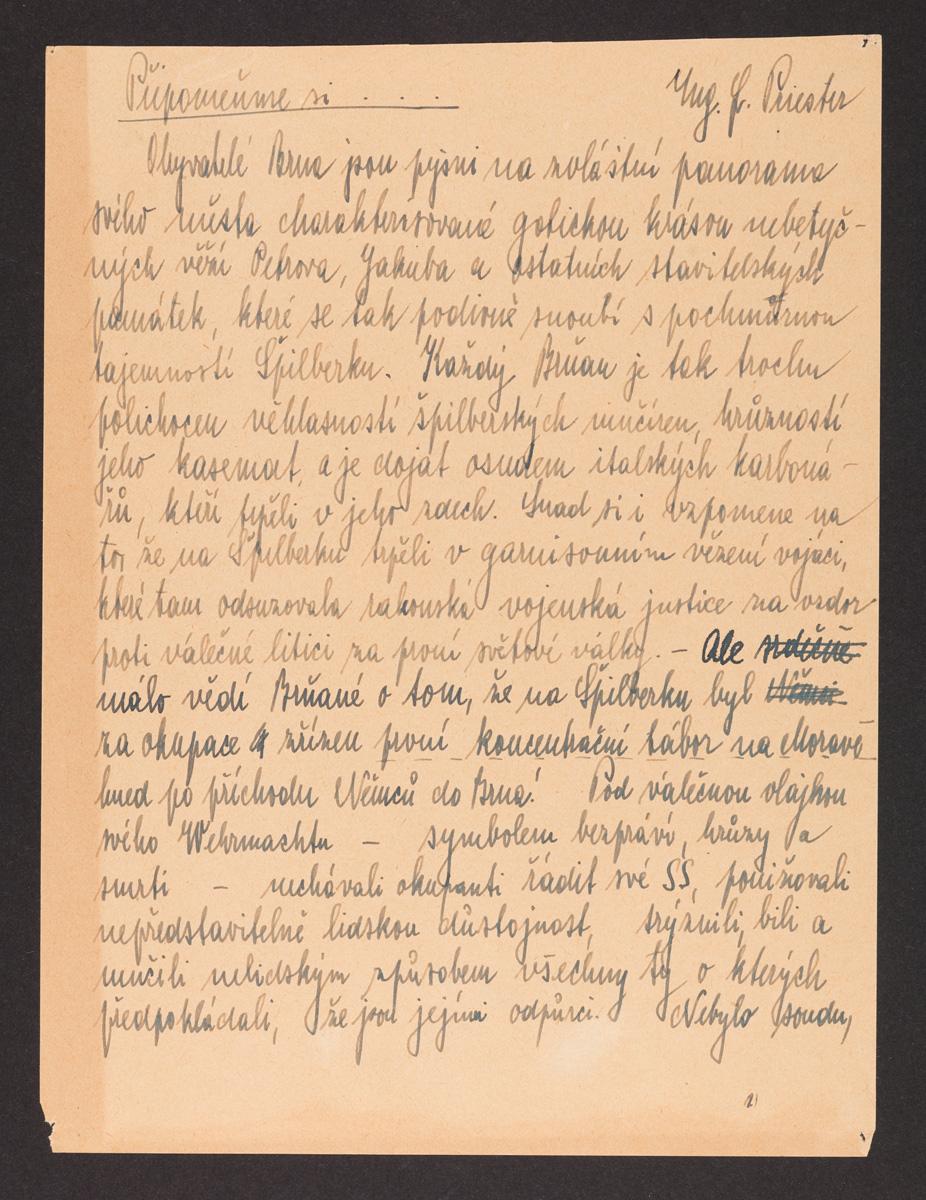 Připomeňme si . . . .
Ing. F. Priester
Obyvatelé Brna jsou pyšni na zvláštní panorama
svého města charakterisované gotickou krásou nebetyč-
ných věží Petrova, Jakuba a ostatních stavitelských
památek, které se tak podivně snoubí s pochmůrnou
tajemností Špilberku. Každý Brňan je tak trochu
polichocen věhlasností špilberských mučíren, hrůzností
jeho kasemat, a je dojat osudem italských karboná-
řů, kteří trpěli v jeho zdech. Snad si i vzpomene na
to, že na Špilberku trpěli v garnisonním vězení vojáci,
které tam odsuzovala rakouská vojenská justice za vzdor
proti válečné litici za první světové války. – Ale
málo vědí Brňané o tom, že na Špilberku byl
za okupace zřízen první koncentrační tábor na Moravě
hned po příchodu Němců do Brna! Pod válečnou vlajkou
svého Wehrmachtu – symbolem bezpráví, hrůzy a
smrti – nechávali okupanti řádit své SS, ponižovali
nepředstavitelně lidskou důstojnost, trýznili, bili a
mučili nelidským způsobem všechny ty o kterých
předpokládali, že jsou jejími odpůrci. Nebylo soudu,